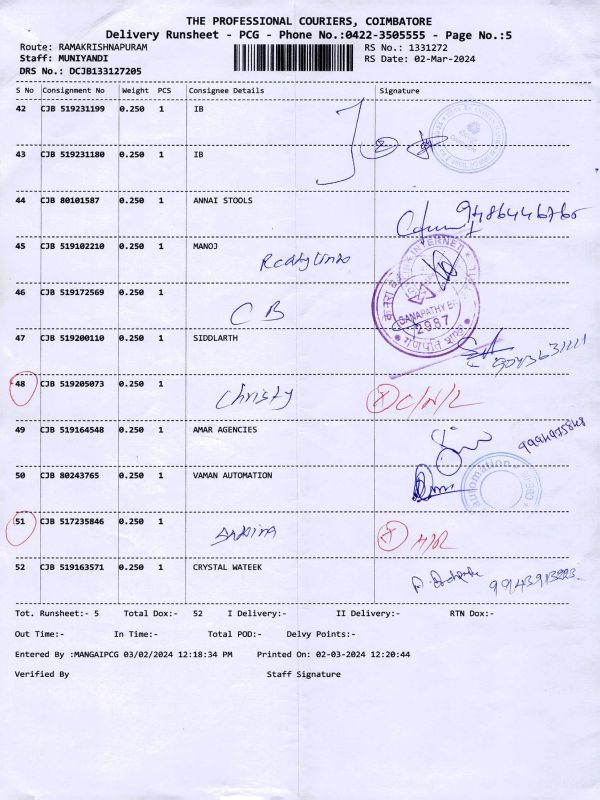 THE PROFESSIONAL COURIERS, COIMBATORE
Delivery Runsheet - PCG - Phone No.:0422-3505555 - Page No.:5
Route: RAMAKRISHNAPURAM RS No.: 1331272
Staff: MUNIYANDI RS Date: 02-Mar-2024
DRS No.: DCJB133127205
S No Consignment No Weight PCS Consignee Details Signature
42 CJB 519231199 0.250 1 IB
43 CJB 519231180 0.250 1 IB
2
44 CJB 80101587 0.250 1 ANNAI STOOLS
9486446765
45 CJB 519102210 0.250 1 MANOJ
46 CJB 519172569 0.250 1
CB
GANAPATHY
2987
47 CJB 519200110 0.250 1 SIDDLARTH
9043631111
48 CJB 519205073 0.250 1
Christy C/N/L
49 CJB 519164548 0.250 1 AMAR AGENCIES
50 CJB 80243765 0.250 1 VAMAN AUTOMATION
automation
51 CJB 517235846 0.250 1
52 CJB 519163571 0.250 1 CRYSTAL WATEEK
Tot. Runsheet:- 5 Total Dox:- 52 I Delivery:- II Delivery:- RTN Dox:-
Out Time:- In Time:- Total POD:- Delvy Points:-
Entered By :MANGAIPCG 03/02/2024 12:18:34 PM Printed On: 02-03-2024 12:20:44
Verified By Staff Signature